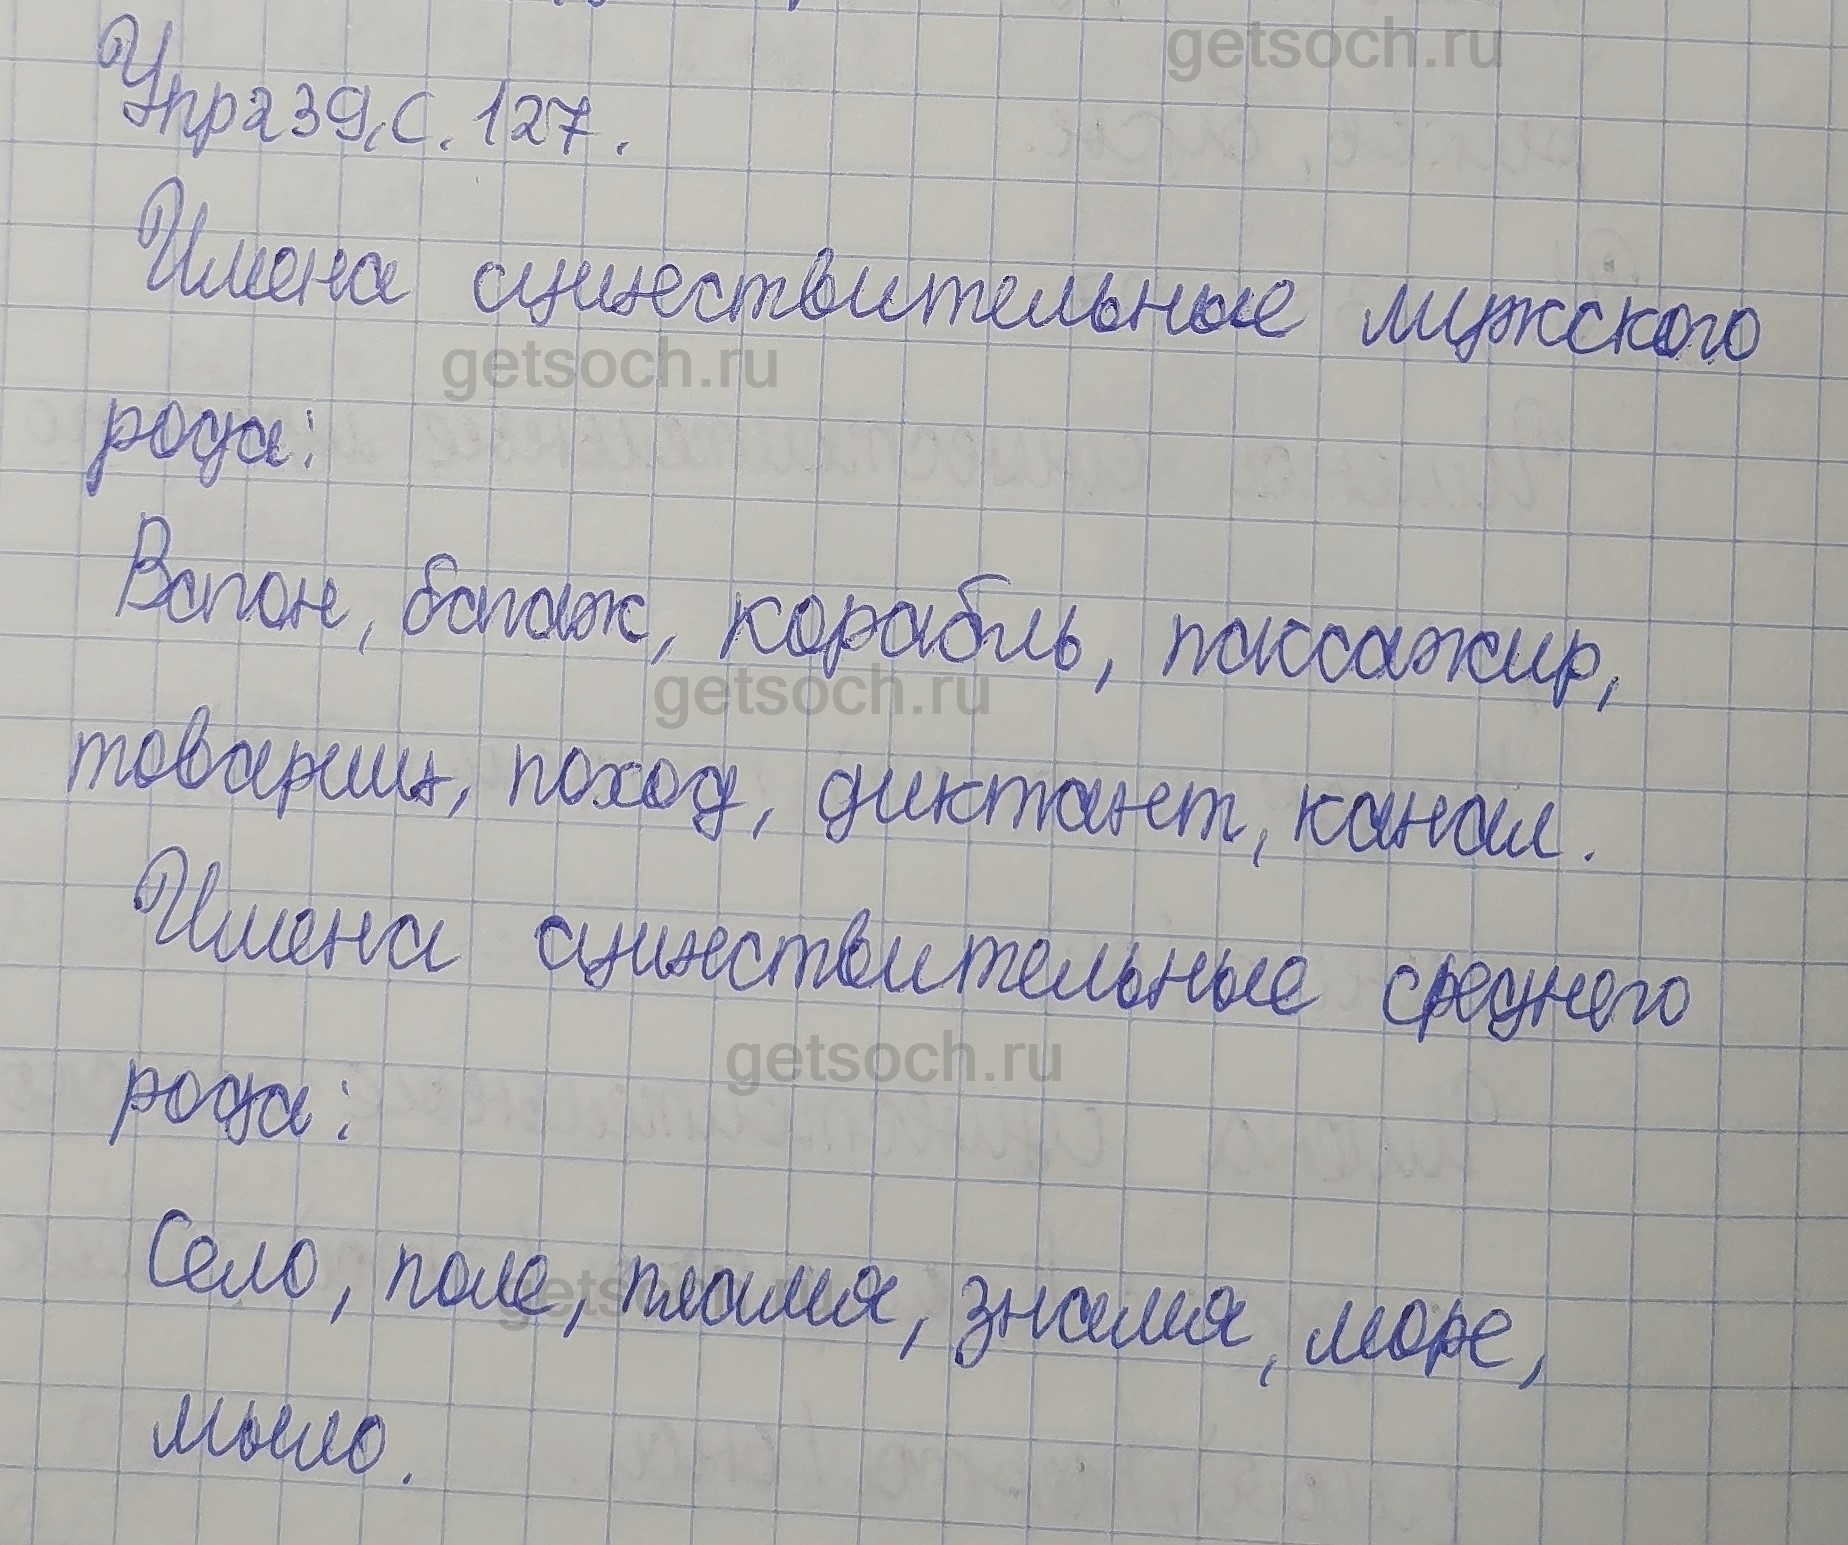 getsoch.ru
Упр239, с. 127.
Имена существительные мужского
getsoch.ru
рода:
Вагон, багаж, корабль, пассажир,
getsoch.ru
товарищ, поход, диктант, канал.
Имена существительные среднего
getsoch.ru
рода:
Село, поле, пламя, знамя, море,
getsoch.ru
мыло.